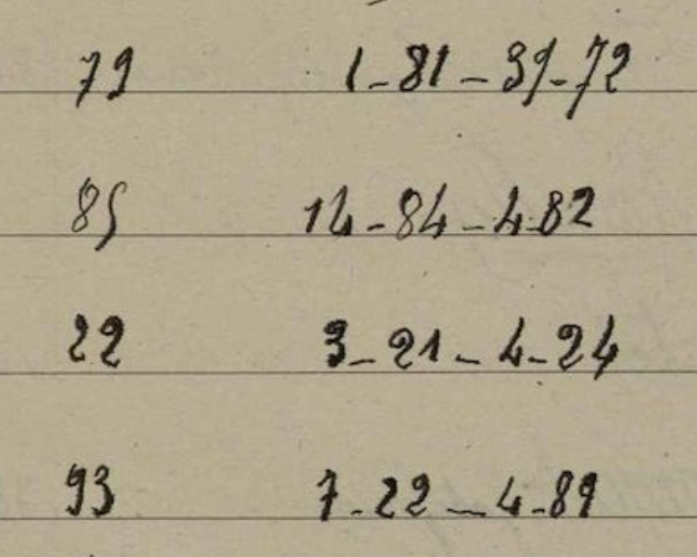 79 1-81-39-72
85 14-84-4.82
22 3-21-4-24
93 7-22-4-89